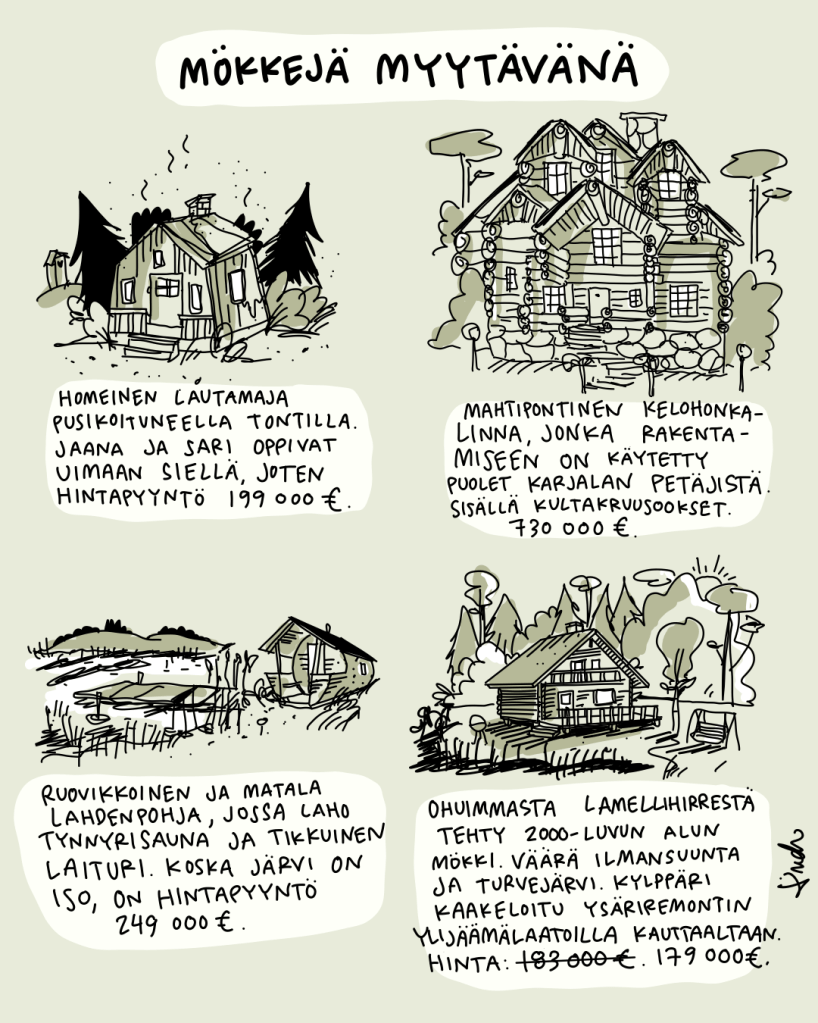 MÖKKEJÄ MYYTÄVÄNÄ
HOMEINEN LAUTAMAJA
PUSIKOITUNEELLA TONTILLA.
JAANA JA SARI OPPIVAT
UIMAAN SIELLÄ, JOTEN
HINTAPYYNTÖ 199 000 €.
MAHTIPONTINEN KELOHONKA-
LINNA, JONKA RAKENTA-
MISEEN ON KÄYTETTY
PUOLET KARJALAN PETÄJISTÄ.
SISÄLLÄ KULTAKRUUSOOKSET.
730 000 €.
RUOVIKKOINEN JA MATALA
LAHDENPOHJA, JOSSA LAHO
TYNNYRISAUNA JA TIKKUINEN
LAITURI. KOSKA JÄRVI ON
ISO, ON HINTAPYYNTÖ
249 000 €.
OHUIMMASTA LAMELLIHIRRESTÄ
TEHTY 2000-LUVUN ALUN
MÖKKI. VÄÄRÄ ILMANSUUNTA
JA TURVEJÄRVI. KYLPPÄRI
KAAKELOITU YSÄRIREMONTIN
YLIJÄÄMÄLAATOILLA KAUTTAALTAAN.
HINTA: 183 000 €. 179 000 €.